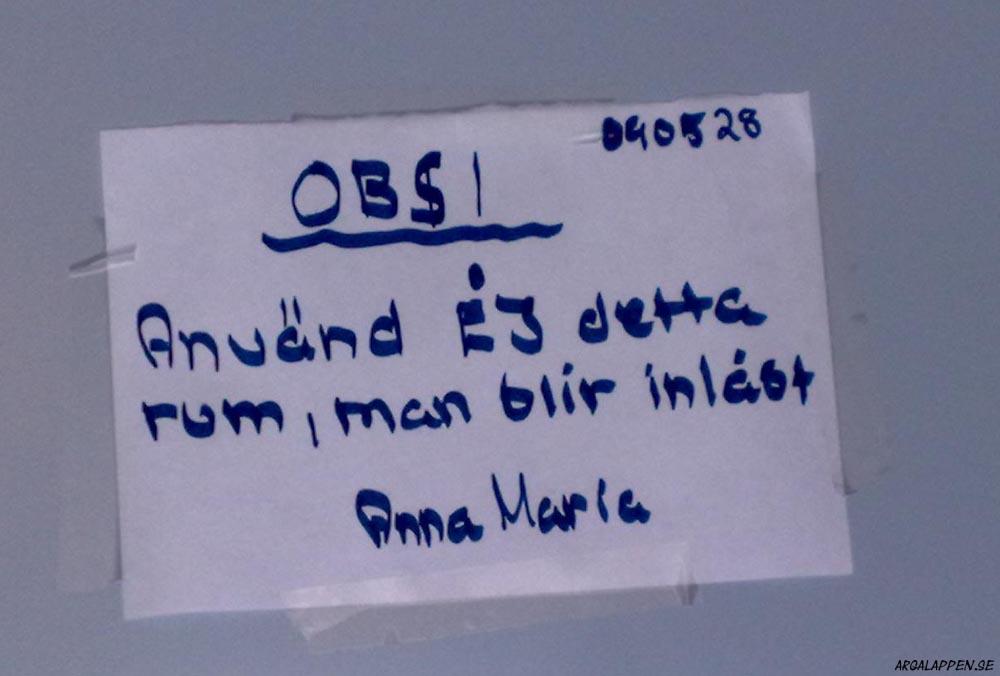 090528
OBS!
Använd EJ detta
rum, man blir inlåst
Anna Maria
ARGALAPPEN.SE